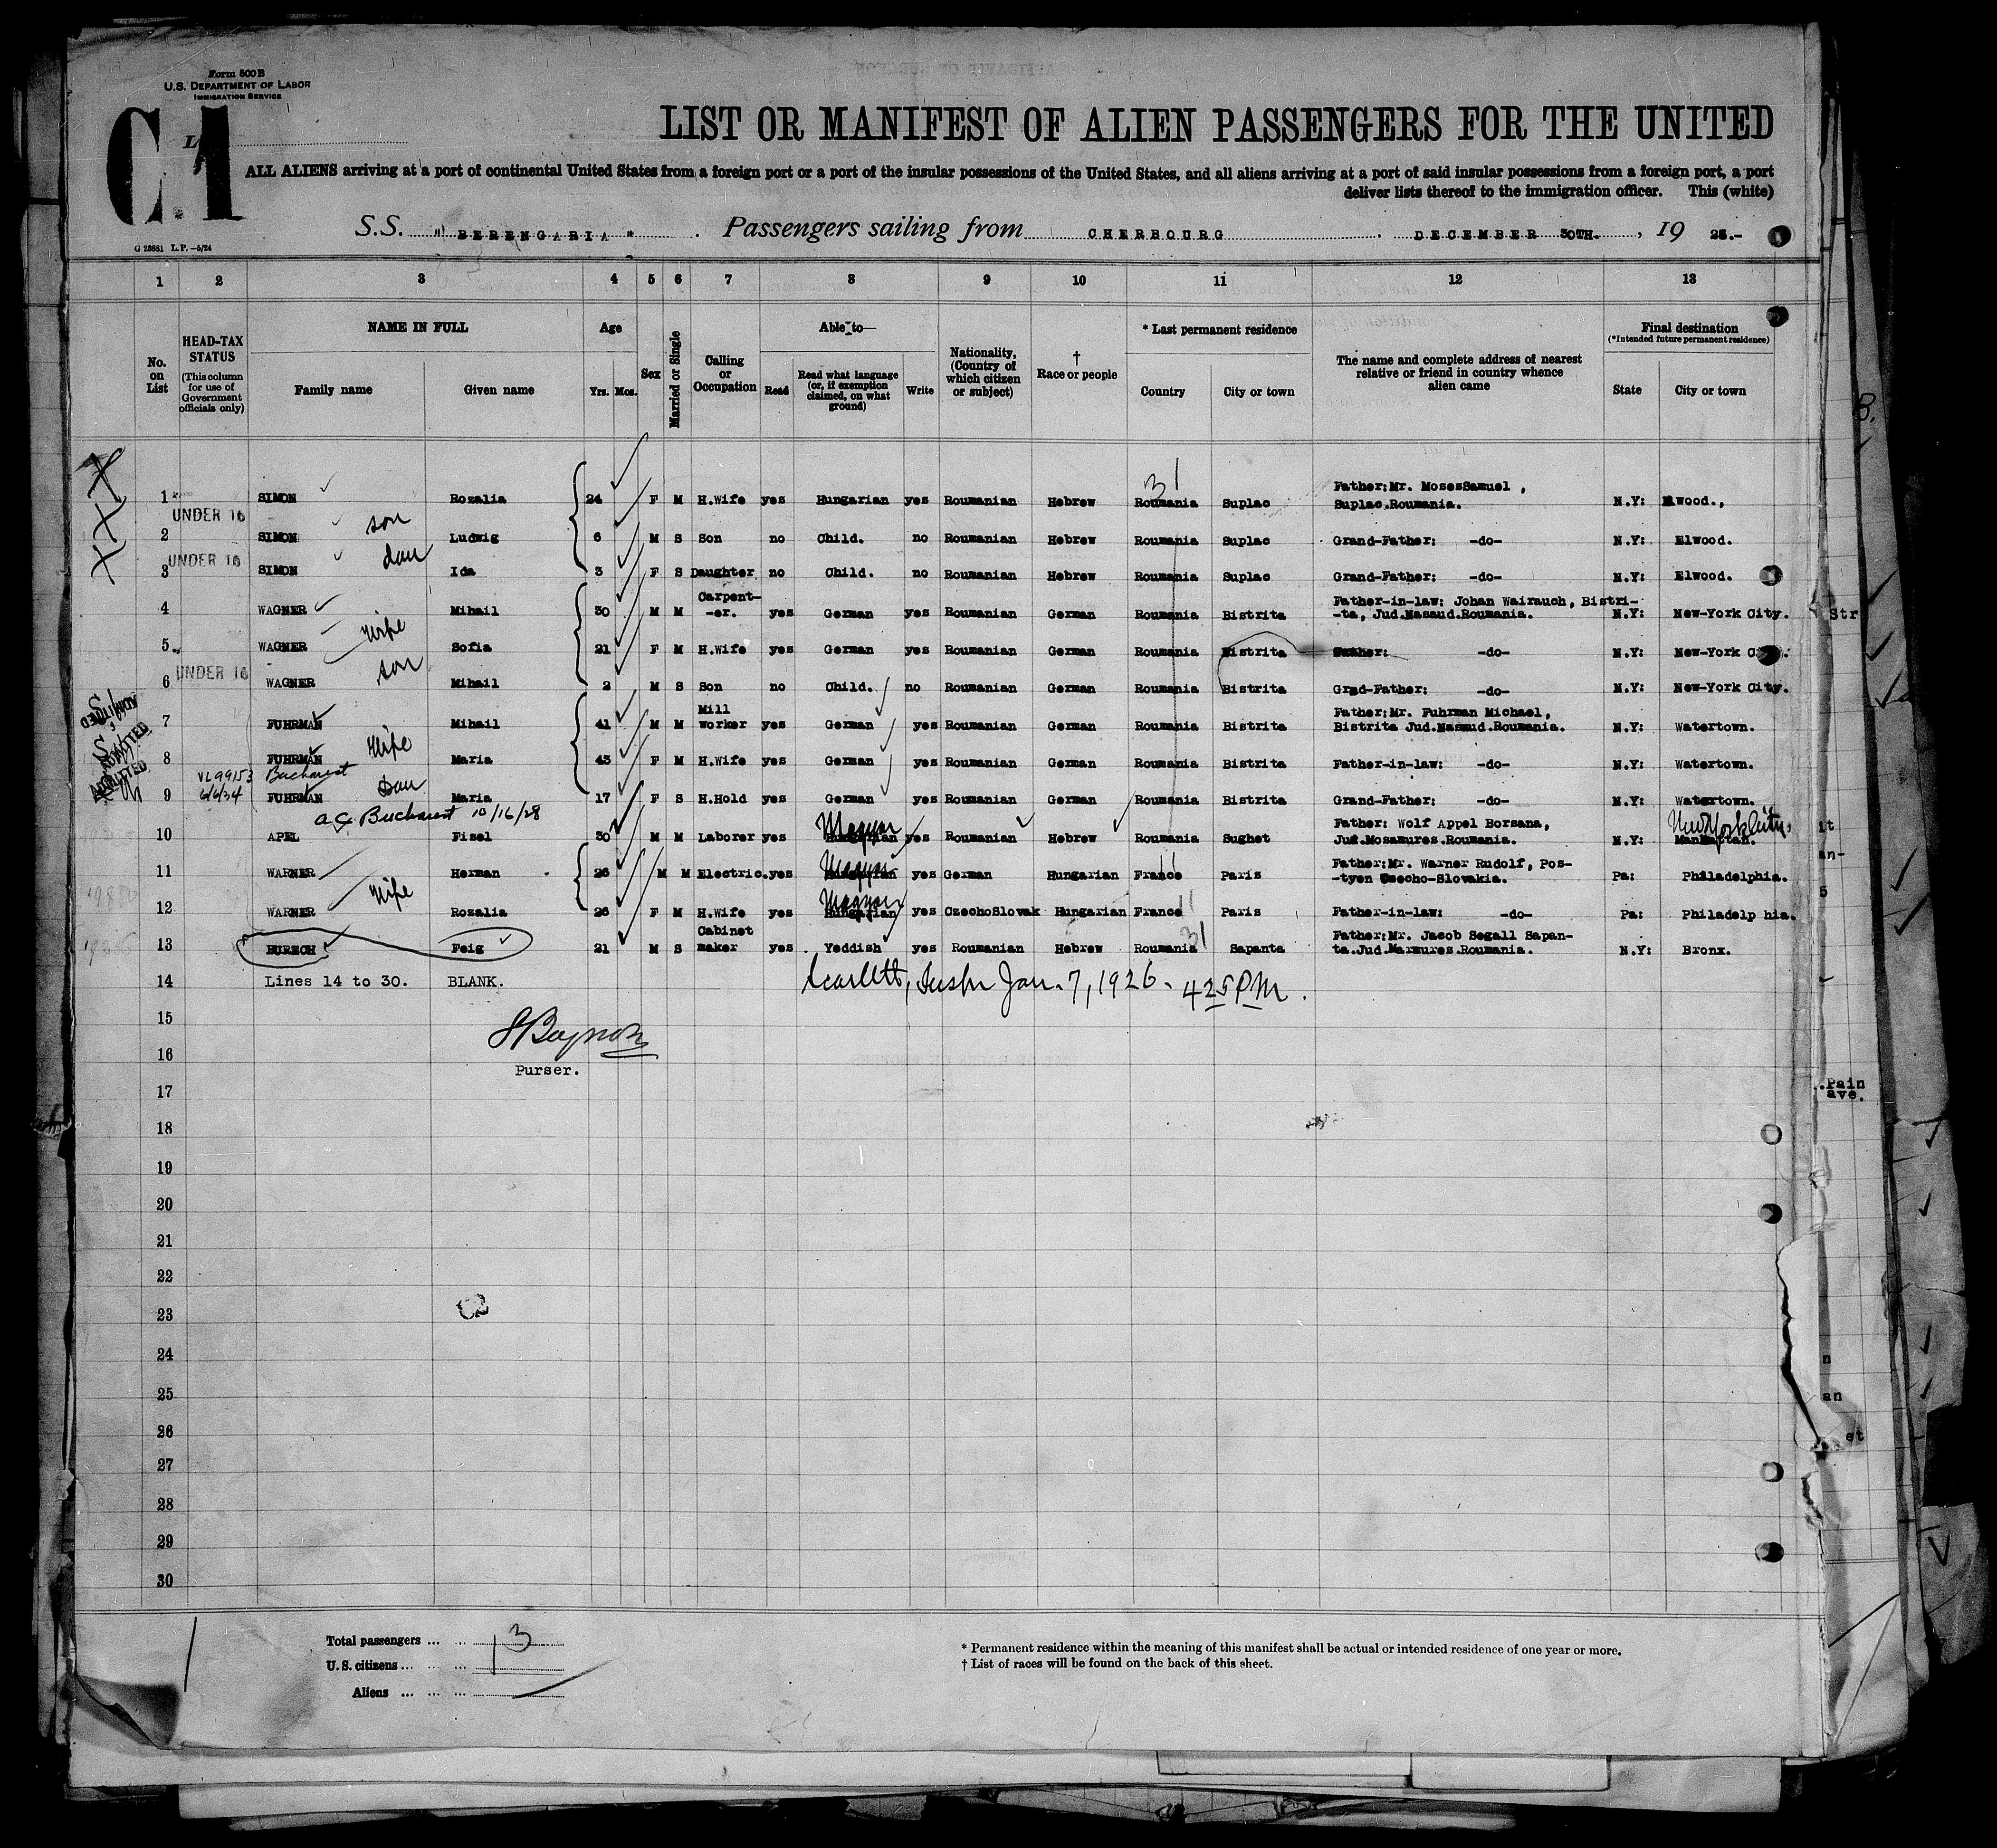 Form 500 B
U.S. DEPARTMENT OF LABOR
IMMIGRATION SERVICE
C.1
LIST OR MANIFEST OF ALIEN PASSENGERS FOR THE UNITED
ALL ALIENS arriving at a port of continental United States from a foreign port or a port of the insular possessions of the United States, and all aliens arriving at a port of said insular possessions from a foreign port, a port
deliver lists thereof to the immigration officer. This (white)
S.S. "BERENGARIA" . Passengers sailing from CHERBOURG . DECEMBER 30TH. , 19 25.-
G 23881 L.P. —5/24
1 2 3 4 5 6 7 8 9 10 11 12 13
No. on List
HEAD-TAX STATUS
(This column for use of Government officials only)
NAME IN FULL
Family name Given name
Age
Yrs. Mos.
Sex
Married or Single
Calling or Occupation
Able to—
Read
Read what language (or, if exemption claimed, on what ground)
Write
Nationality, (Country of which citizen or subject)
† Race or people
* Last permanent residence
Country City or town
The name and complete address of nearest relative or friend in country whence alien came
Final destination
(*Intended future permanent residence)
State City or town
31
Father:Mr. MosesSamuel ,
1 SIMON Rozalia 24 F M H.Wife yes Hungarian yes Roumanian Hebrew Roumania Suplac Suplac.Roumania. N.Y: Elwood.,
UNDER 16 son
2 SIMON Ludwig 6 M S Son no Child. no Roumanian Hebrew Roumania Suplac Grand-Father: -do- N.Y: Elwood.
UNDER 16 dau
3 SIMON Ida 3 F S Daughter no Child. no Roumanian Hebrew Roumania Suplac Grand-Father: -do- N.Y: Elwood.
Carpent- Father-in-law: Johan Wairauch, Bistri-
4 WAGNER Mihail 30 M M -er. yes German yes Roumanian German Roumania Bistrita -ta, Jud.Nasaud.Roumania. N.Y: New-York City.
wife
5 WAGNER Sofia 21 F M H.Wife yes German yes Roumanian German Roumania Bistrita Father: -do- N.Y: New-York
UNDER 16 son
6 WAGNER Mihail 2 M S Son no Child. no Roumanian German Roumania Bistrita Grad-Father: -do- N.Y: New-York City.
ADMITTED Mill Father:Mr. Fuhrman Michael,
7 FUHRMAN Mihail 41 M M worker yes German yes Roumanian German Roumania Bistrita Bistrita Jud.Nasaud.Roumania. N.Y: Watertown.
ADMITTED wife
8 FUHRMAN Maria 43 F M H.Wife yes German yes Roumanian German Roumania Bistrita Father-in-law: -do- N.Y: Watertown.
ADMITTED VL99153 Bucharest Dau
9 6/6/34 FUHRMAN Maria 17 F S H.Hold yes German yes Roumanian German Roumania Bistrita Grand-Father: -do- N.Y: Watertown.
Bucharest 10/16/28 Magyar Father: Wolf Appel Borsana, New York City
10 APEL Fisel 30 M M Laborer yes Hungarian yes Roumanian Hebrew Roumania Sughet Jud.Mosamures.Roumania. N.Y: Manhattan.
Magyar 11 Father:Mr. Warner Rudolf, Pos-
11 WARNER Herman 26 M M Electric. yes Hungarian yes German Hungarian France Paris -tyen Czecho-Slovakia. Pa: Philadelphia.
wife Magyar 11
12 WARNER Rozalia 26 F M H.Wife yes Hungarian yes CzechoSlovak Hungarian France Paris Father-in-law: -do- Pa: Philadelp hia.
Cabinet 31 Father:Mr. Jacob Segall Sapan-
13 BURECH Feig 21 M S maker yes Yeddish yes Roumanian Hebrew Roumania Sapanta ta.Jud.Marmures.Roumania. N.Y: Bronx.
14 Lines 14 to 30. BLANK. Scarlett, Inspr Jan. 7, 1926. 425 PM.
15
16
Purser.
17
18
19
20
21
22
23
24
25
26
27
28
29
30
Total passengers ... ... 13
U.S. citizens ... ... ...
Aliens ... ... ...
* Permanent residence within the meaning of this manifest shall be actual or intended residence of one year or more.
† List of races will be found on the back of this sheet.
Str
it
an-
5
.Pain
ave.
n
an
et